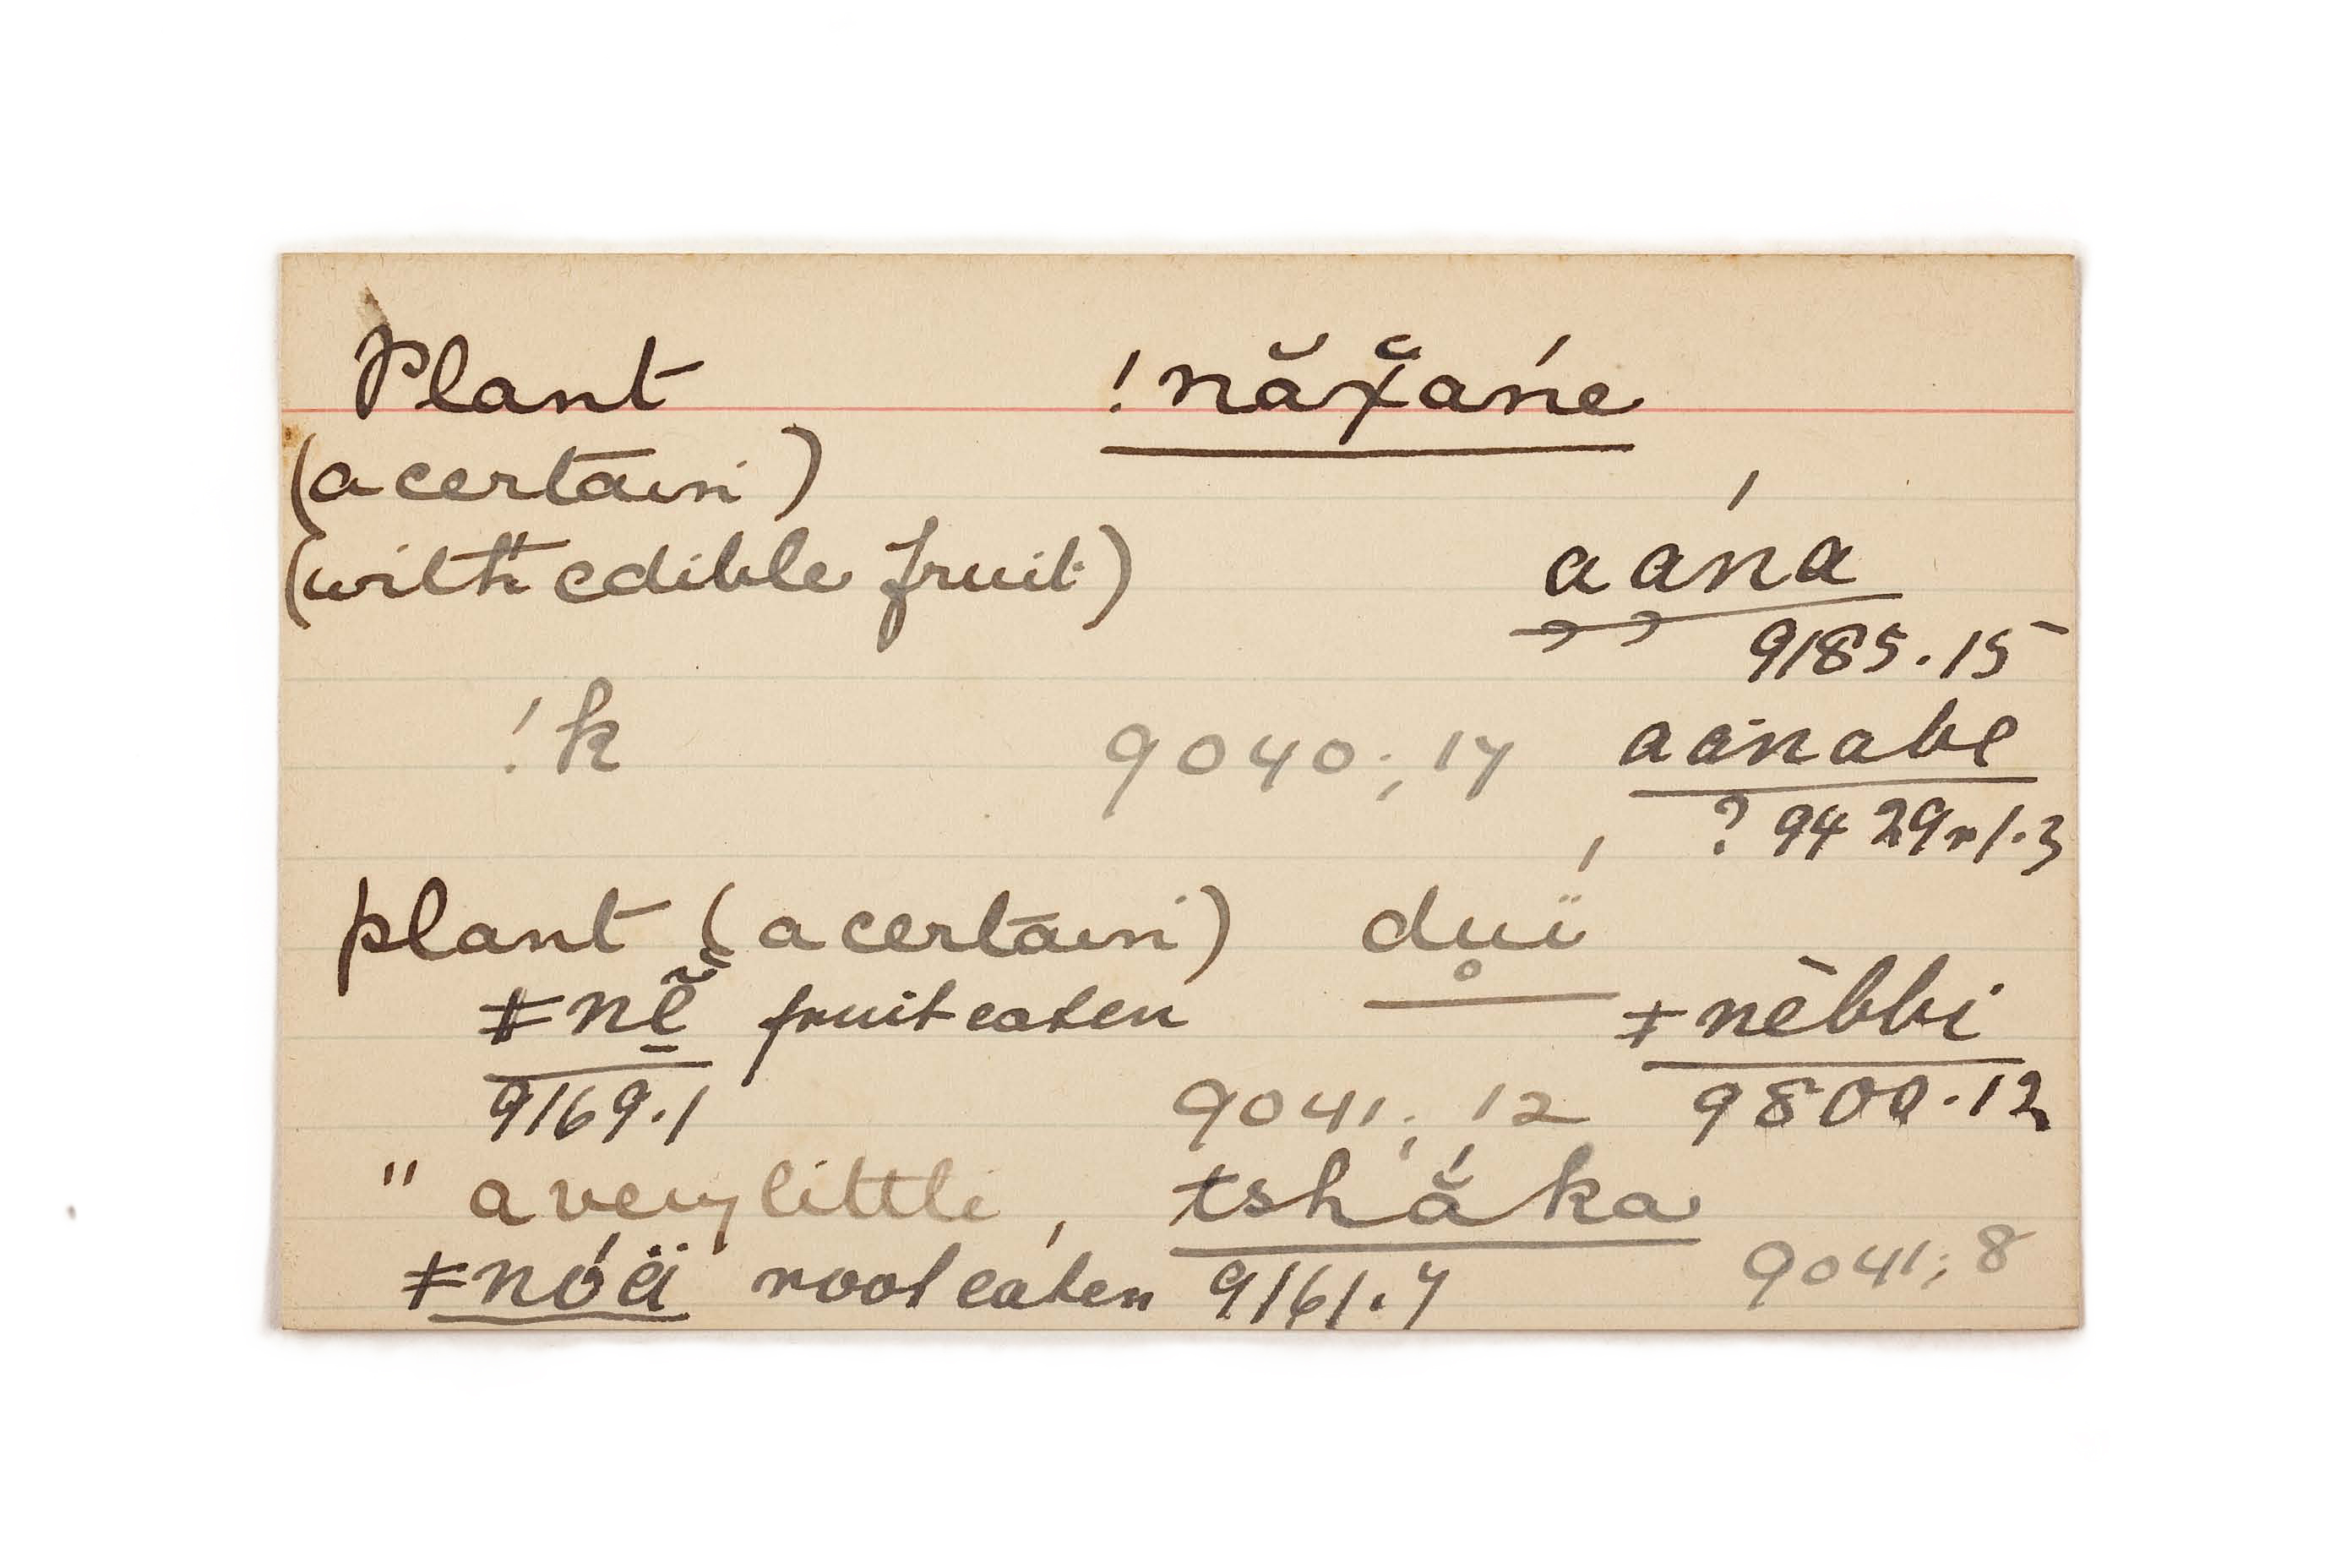 Plant !nă\u03c7̆ańe
(a certain)
(with edible fruit) aána
9185.15
!k 9040;17 aánabe
? 9429r/.3
plant (a certain) du̥ï
ǂnĕ̱ fruit eaten ǂnēbbi
9169.1 9041;12 9800.12
" a very little, tshắka
ǂnóä root eaten 9161.7 9041;8